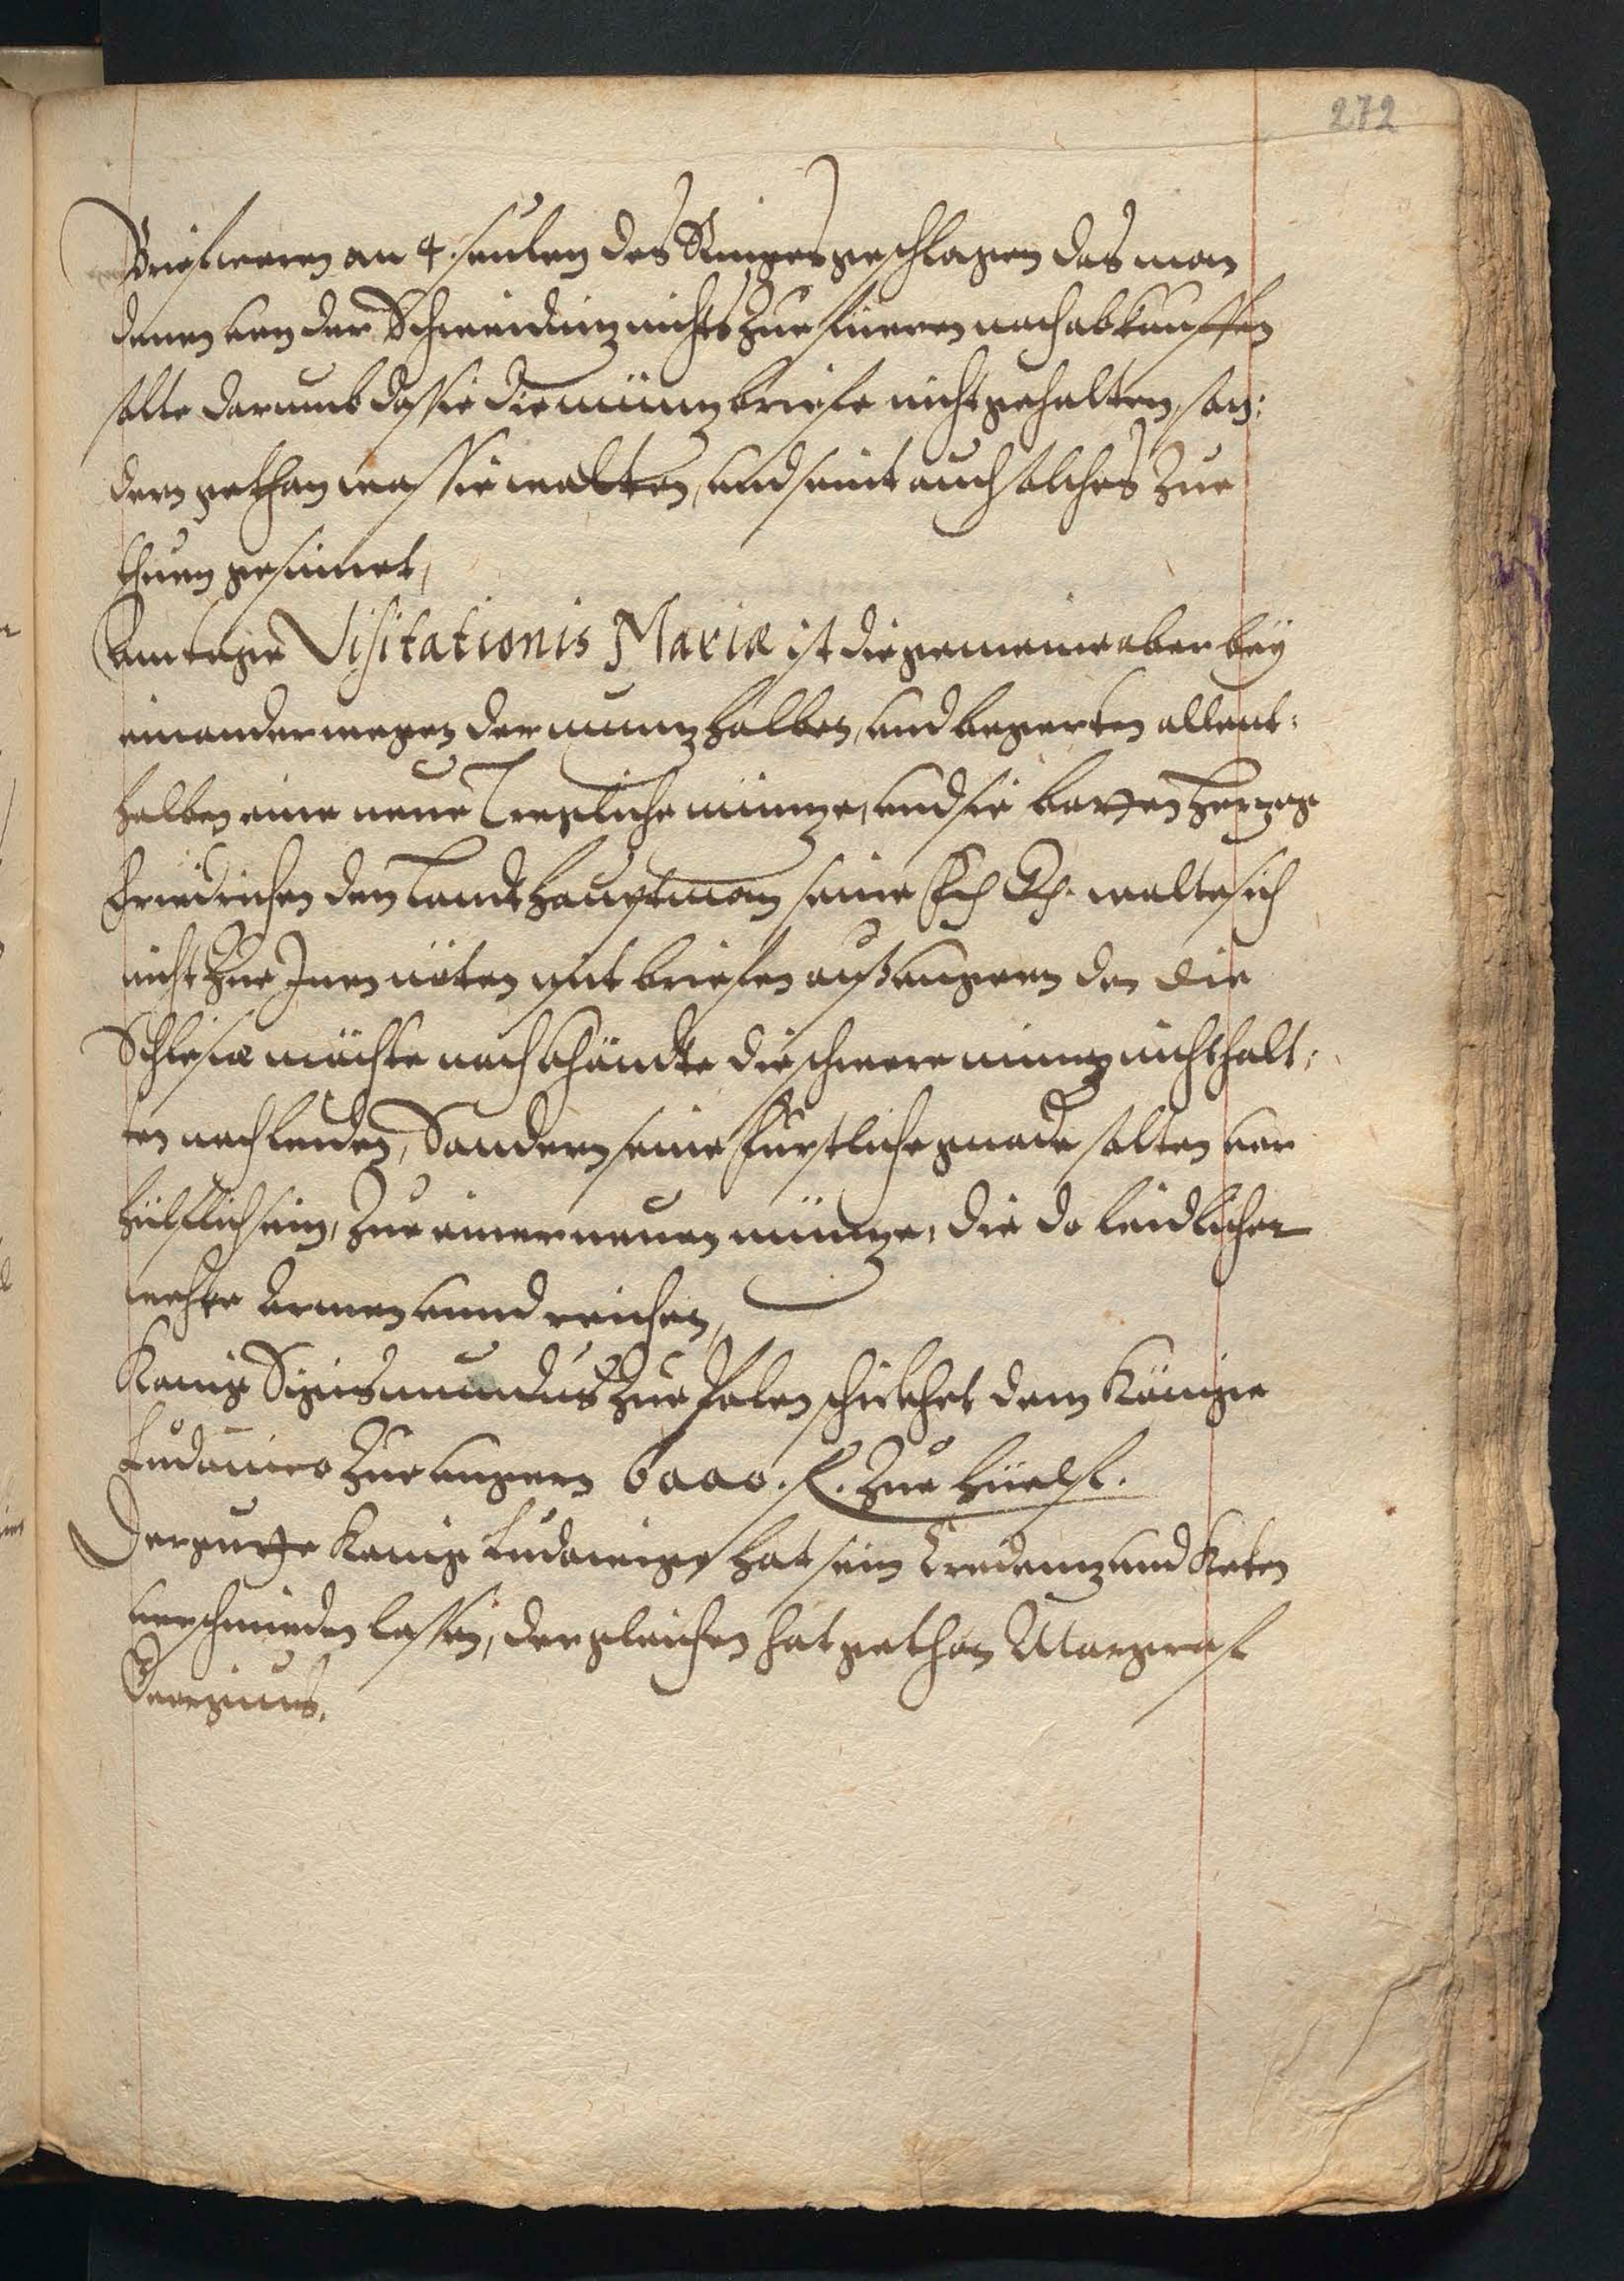 272
Brief waren an 4. seulen des Ringes geschlagen das man
denen von der Schweidnitz nichts zue fueren noch abkauffen
solte darumb das sie die müntz briefe nicht gehalten, son:
dern gethan was sie wolten, und seint auch solches zue
thuen gesinnet,
Am tage Visitationis Mariæ ist die gemeine aber bey
einander wegen der muntz halben, und begerten allent:
halben eine neue tregliche müntze, und sie baten Hertzog
Friedrichen den Landt Hauptman seine F. G. wolte sich
nicht zue Inen nöten mit briefen auß Ungern den die
Schlesie möchte noch khöndte die schwere müntz nicht halt:
en noch leiden, Sondern seine Fürstliche gnade solten vor
hülflich sein, zue einer neuen müntze, die do leidlicher
wehre Armen vnnd reichen,
Konig Sigismundus zue Polen schickhet dem Könige
Ludouico zue Ungern 6000. f. zue hüelf.
Der gutte Konig Ludowig hat sein Credentz und Keten
verschmieden lassen, dergleichen hat gethan Margraf
Georgius.